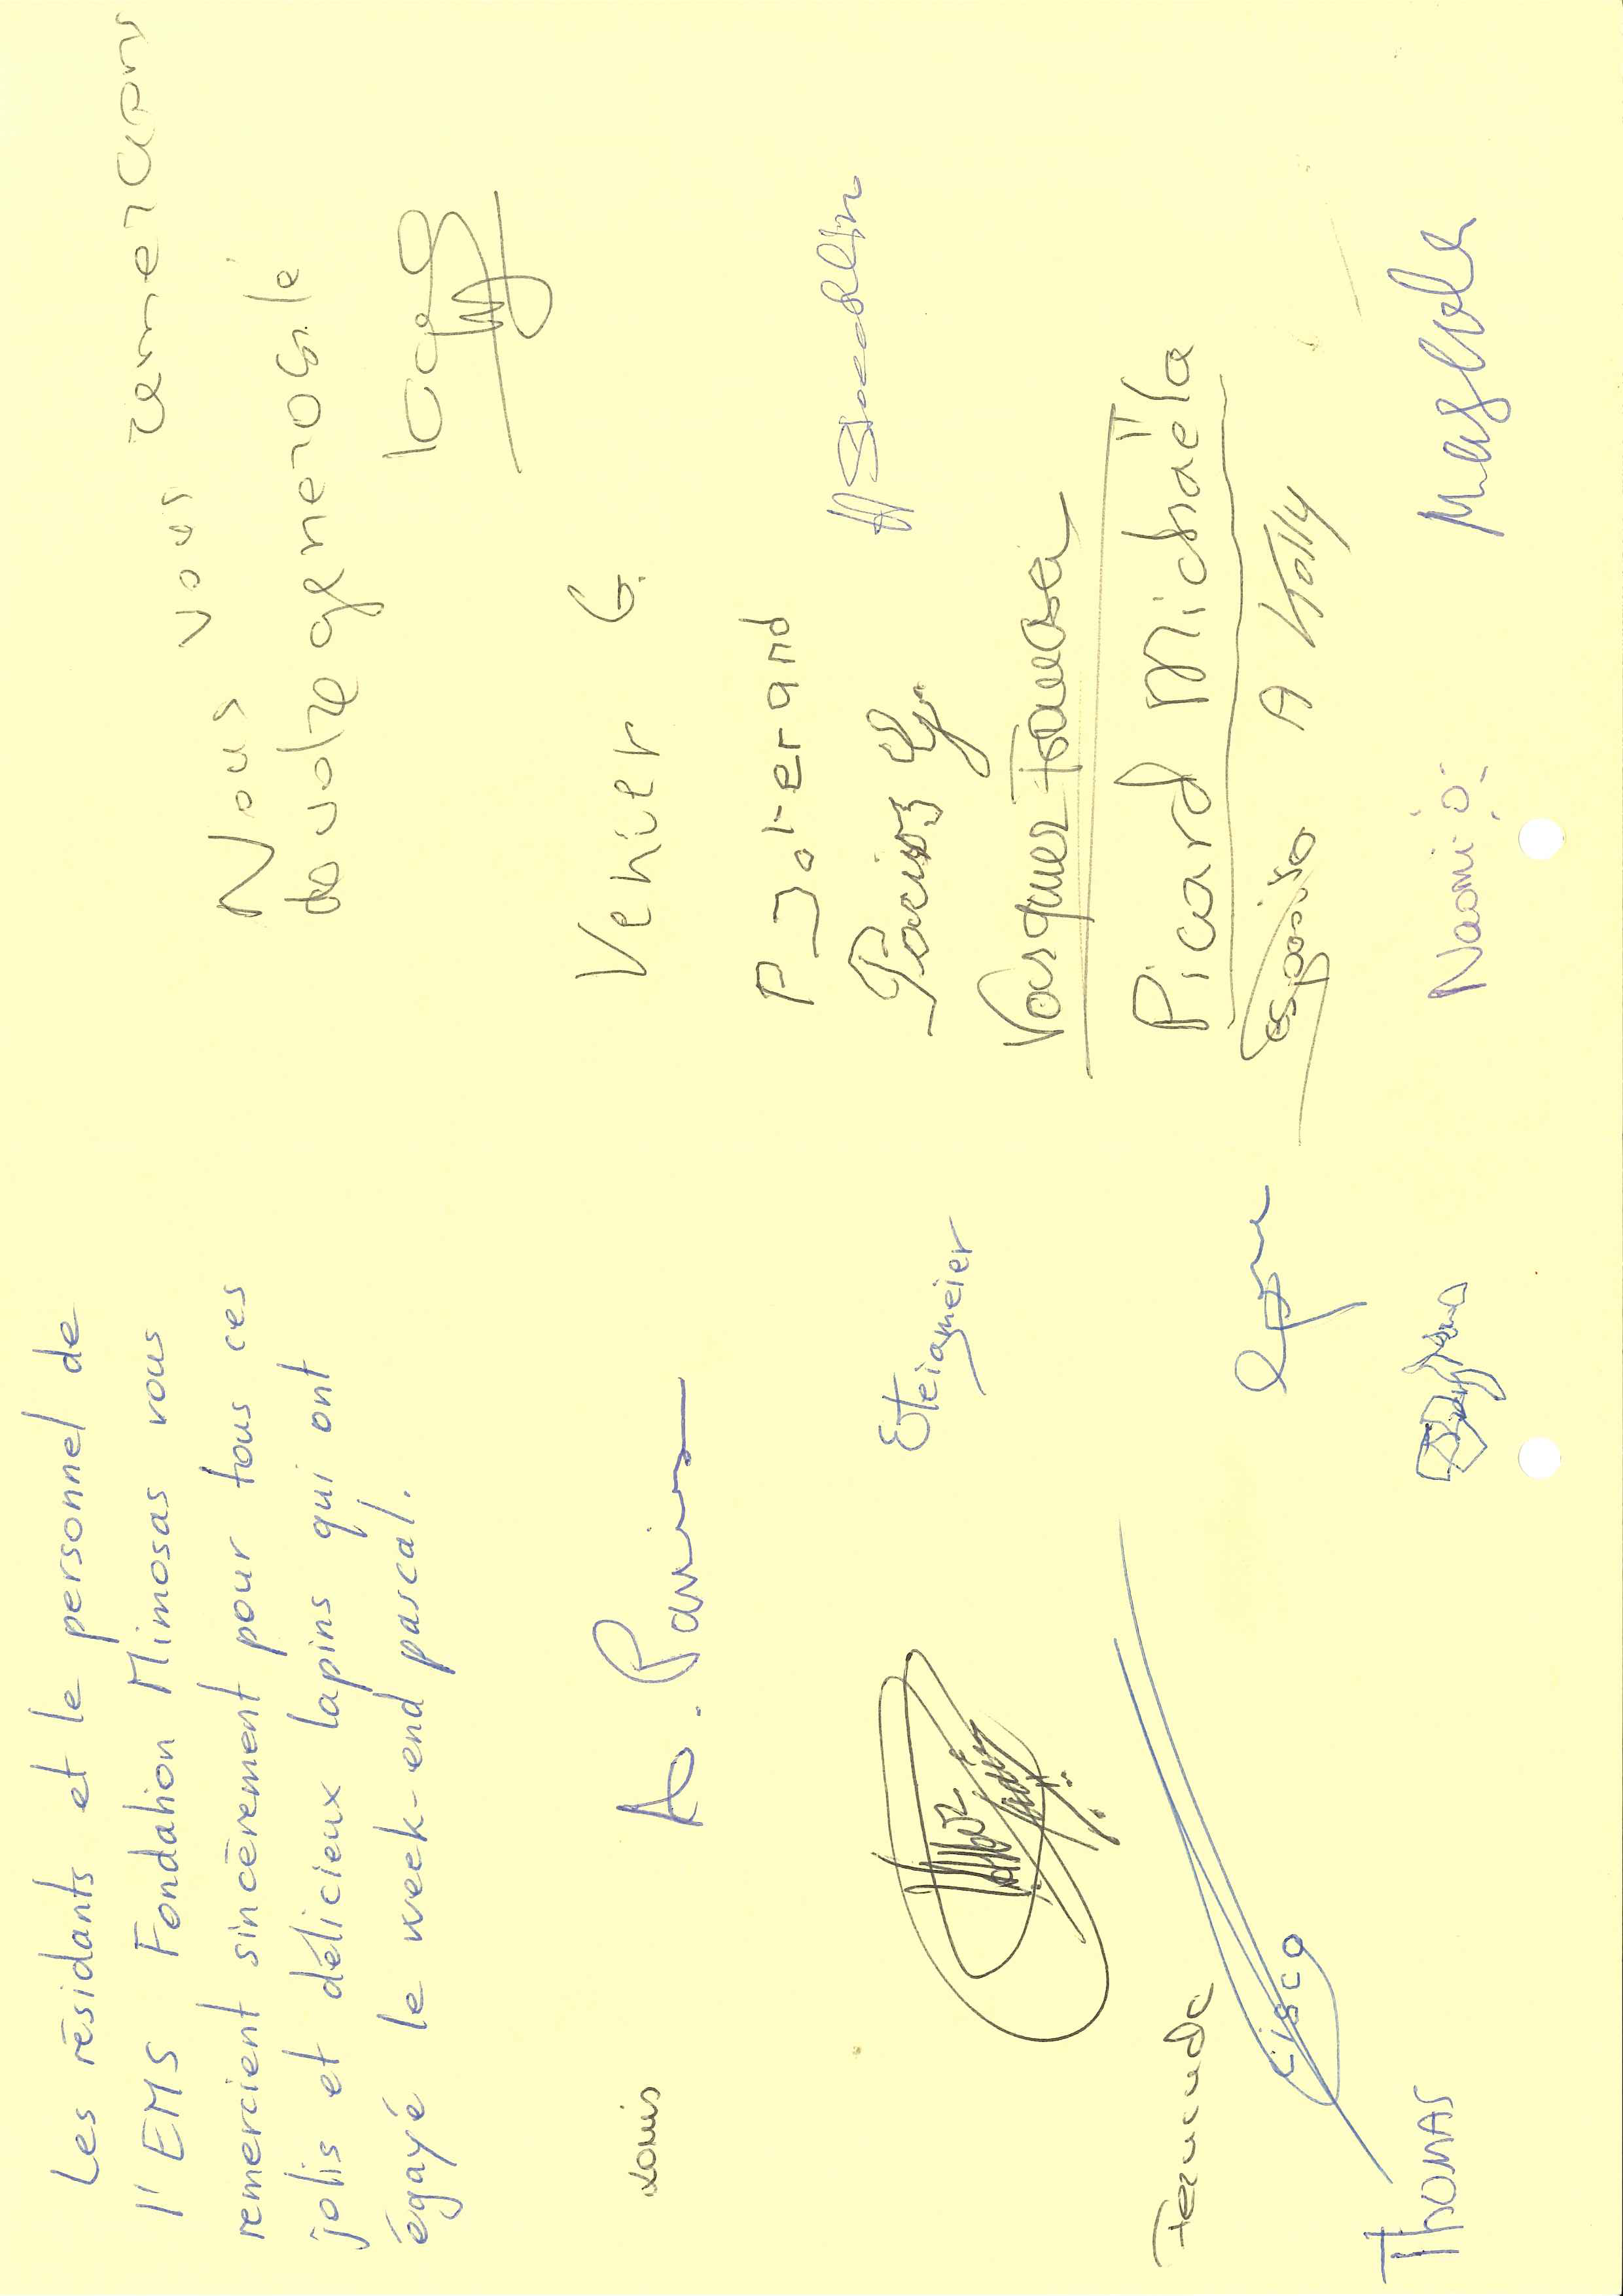 Les résidants et le personnel de
l'EMS Fondation Mimosas vous
remercient sincèrement pour tous ces
jolis et délicieux lapins qui ont
égayé le week-end pascal.
Louis
A.
Steigmeier
Fernanda
Cisco
THOMAS
Nous vous remercions
de votre generosité
Venier G.
P Joterand
Vasquez
Picard Michaëla
Esposito A Kolly
Naomi